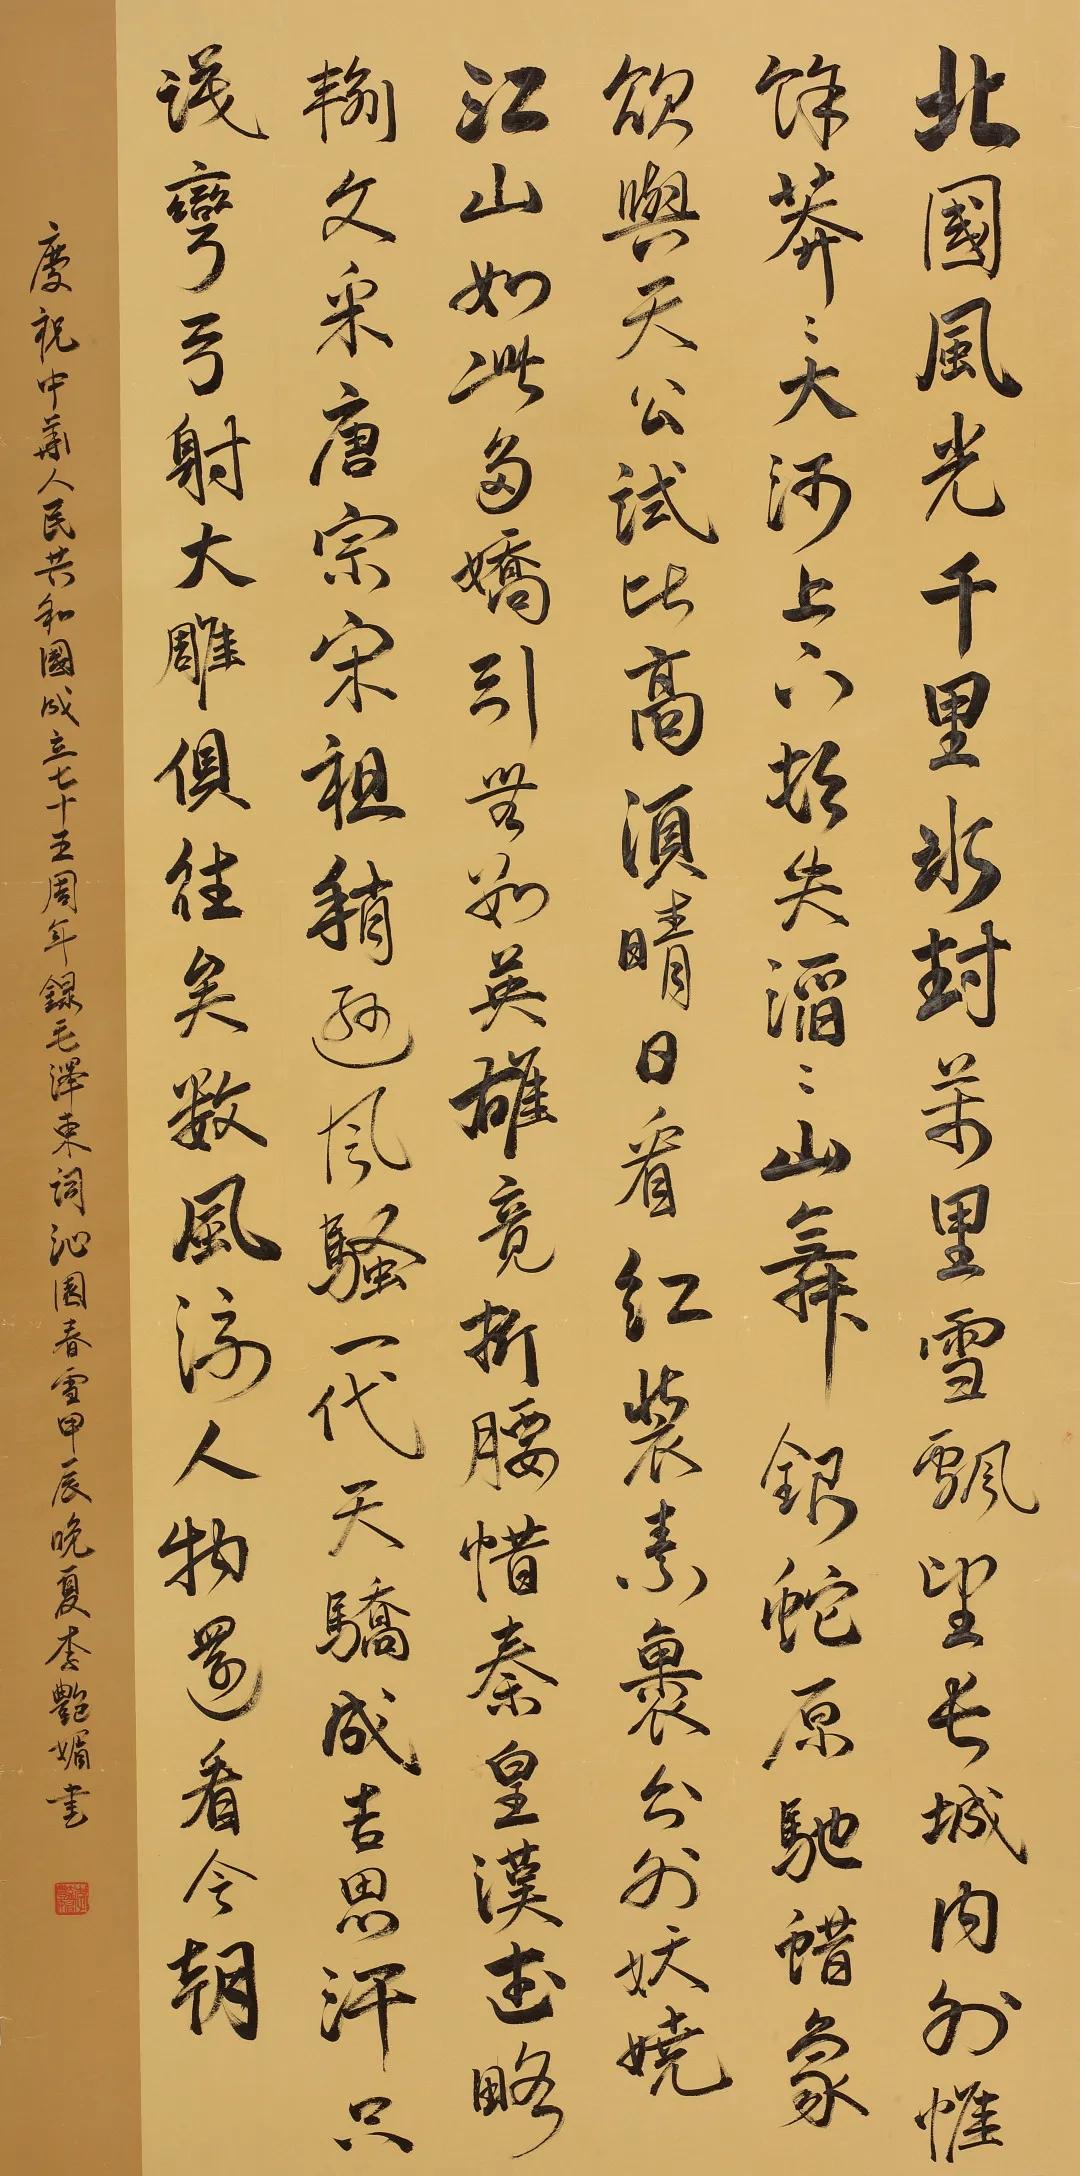 北國風光千里冰封萬里雪飄望長城内外惟
餘莽〻大河上下頓失滔〻山舞銀蛇原馳蜡象
欲與天公試比高須晴日看紅裝素裹分外妖嬈
江山如此多嬌引無數英雄竟折腰惜秦皇漢武略
輸文采唐宗宋祖稍遜风騷一代天驕成吉思汗只
識彎弓射大雕俱往矣数風流人物還看今朝
慶祝中華人民共和國成立七十五周年錄毛澤東詞沁園春雪甲辰晚夏李艷媚書